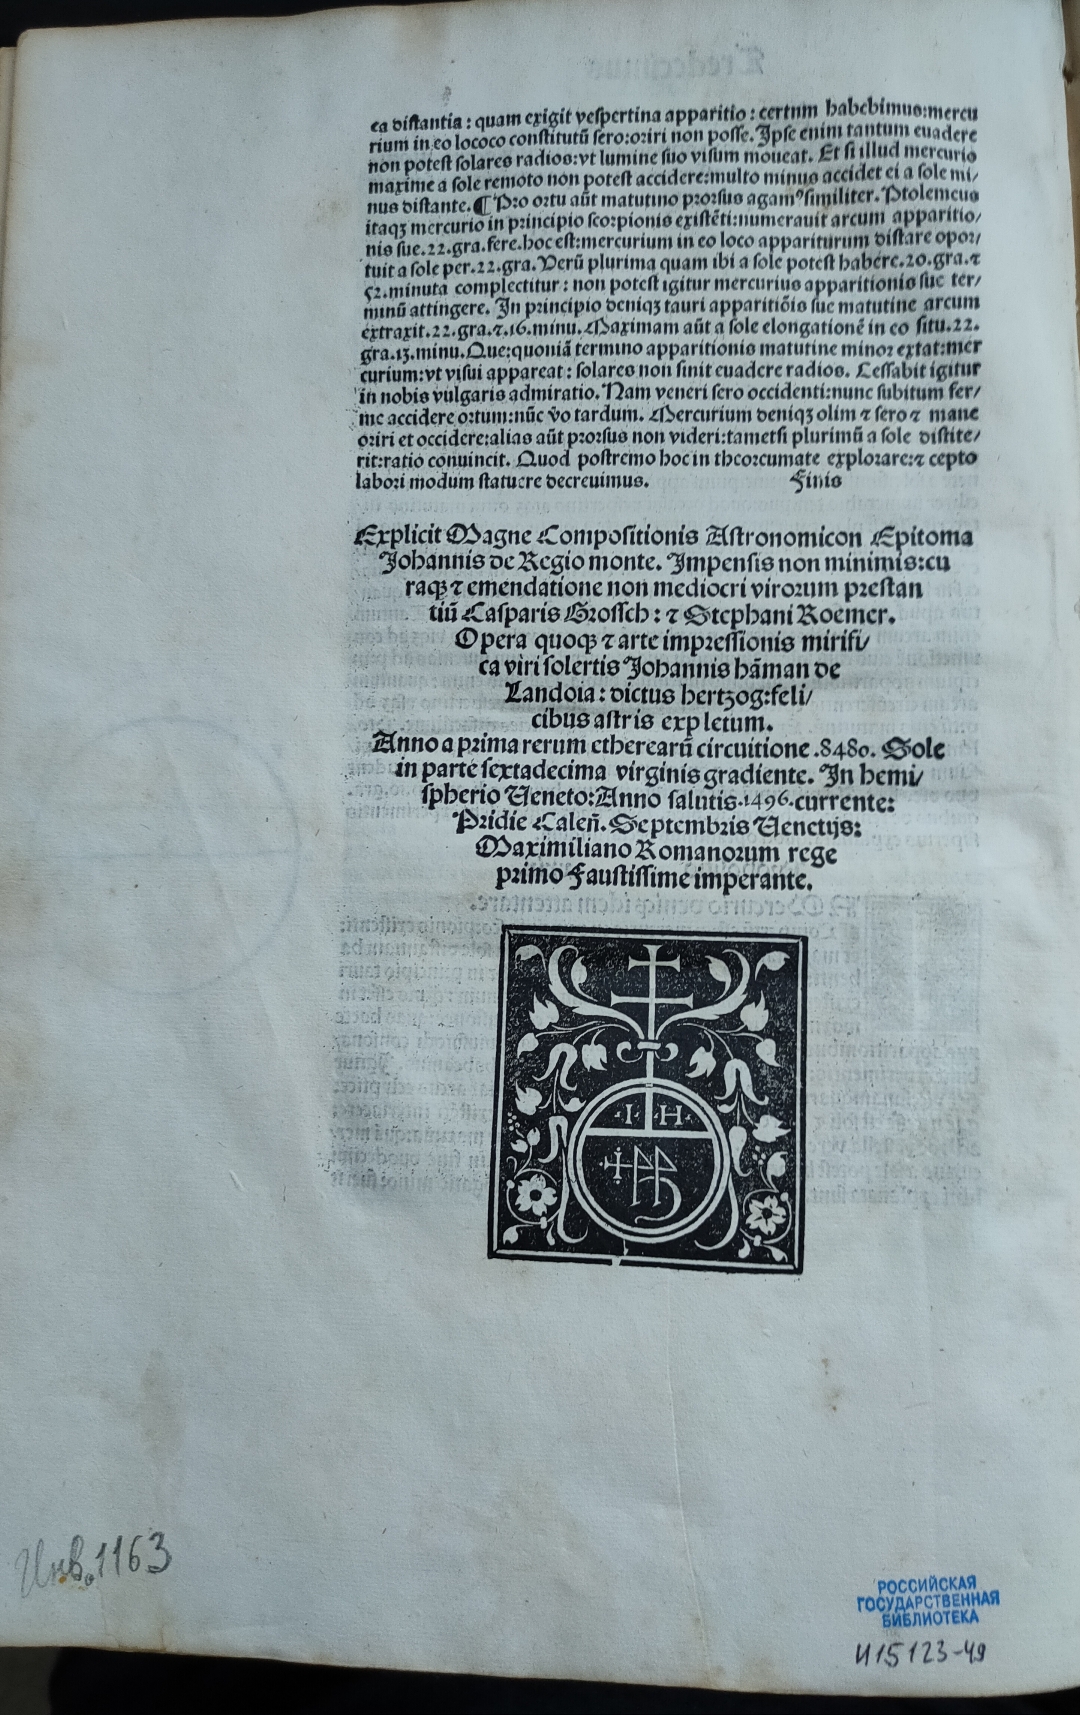 ea distantia : quam exigit vespertina apparitio : certum habebimus:mercu
rium in eo lococo constitutū sero:oriri non posse. Ipse enim tantum euadere
non potest solares radios:vt lumine suo visum moueat. Et si illud mercurio
maxime a sole remoto non potest accidere:multo minus accidet ei a sole mi/
nus distante.¶ Pro ortu aūt matutino prorsus agamꝰ similiter. Ptolemeus
itaqꝫ mercurio in principio scorpionis existēti:numerauit arcum apparitio/
nis sue.22.gra.fere.hoc est:mercurium in eo loco appariturum distare opor/
tuit a sole per.22.gra. Verū plurima quam ibi a sole potest habere.20.gra.⁊
52.minuta complectitur : non potest igitur mercurius apparitionis sue ter/
minū attingere. In principio deniqꝫ tauri apparitiōis sue matutine arcum
extraxit.22.gra.⁊.16.minu. Maximam aūt a sole elongationē in eo situ.22.
gra.13.minu. Que:quoniā termino apparitionis matutine minor extat:mer
curium:vt visui appareat : solares non sinit euadere radios. Cessabit igitur
in nobis vulgaris admiratio. Nam veneri sero occidenti:nunc subitum fer/
me accidere ortum:nūc v̄o tardum. Mercurium deniqꝫ olim ⁊ sero ⁊ mane
oriri et occidere:alias aūt prorsus non videri:tametsi plurimū a sole distite/
rit:ratio conuincit. Quod postremo hoc in theoreumate explorare:⁊ cepto
labori modum statuere decreuimus. Finis
Explicit Magne Compositionis Astronomicon Epitoma
Johannis de Regio monte. Impensis non minimis:cu
raqꝫ ⁊ emendatione non mediocri virorum prestan
tiū Casparis Grossch: ⁊ Stephani Roemer.
Opera quoqꝫ ⁊ arte impressionis mirifi/
ca viri solertis Johannis hāman de
Landoia : dictus hertzog:feli/
cibus astris expletum.
Anno a prima rerum etherearū circuitione .8480. Sole
in parte sextadecima virginis gradiente. In hemi/
spherio Veneto:Anno salutis.1496.currente:
Pridie Caleñ. Septembris Venetijs:
Maximiliano Romanorum rege
primo Faustissime imperante.
·I·H·
Инв.1163
РОССИЙСКАЯ
ГОСУДАРСТВЕННАЯ
БИБЛИОТЕКА
И15123-49